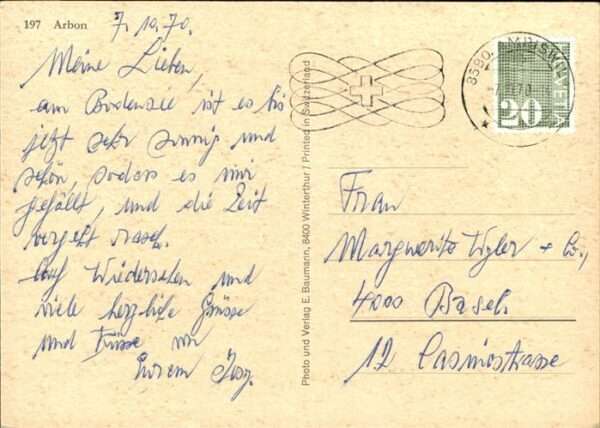 197 Arbon
7.10.70.
Meine Lieben,
am Bodensee ist es bis
jetzt sehr sonnig und
schön, sodass es mir
gefällt, und die Zeit
vergeht rasch.
Auf Wiedersehen und
viele herzliche Grüsse
und Küsse von
Eurem
Photo und Verlag E. Baumann, 8400 Winterthur / Printed in Switzerland
8580
70
20
HELVETIA
Frau
Margarita Wyler + Co.,
4000 Basel
12 Casinostrasse